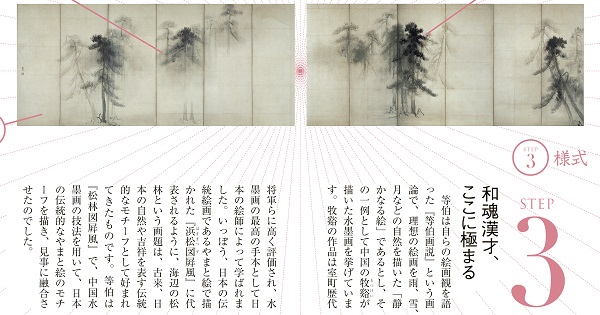 STEP
3
様式
STEP
3
和魂漢才、
ここに極まる
等伯は自らの絵画観を語
った『等伯画説』という画
論で、理想の絵画を雨、雪、
月などの自然を描いた「静
かなる絵」であるとし、そ
の一例として中国の牧谿が
描いた水墨画を挙げていま
す。牧谿の作品は室町歴代
将軍らに高く評価され、水
墨画の最高の手本として日
本の絵師によって学ばれま
した。いっぽう、日本の伝
統絵画であるやまと絵で描
かれた『浜松図屛風』に代
表されるように、海辺の松
林という画題は、古来、日
本の自然や吉祥を表す伝統
的なモチーフとして好まれ
てきたものです。等伯は
『松林図屛風』で、中国水
墨画の技法を用いて、日本
の伝統的なやまと絵のモチ
ーフを描き、見事に融合さ
せたのでした。